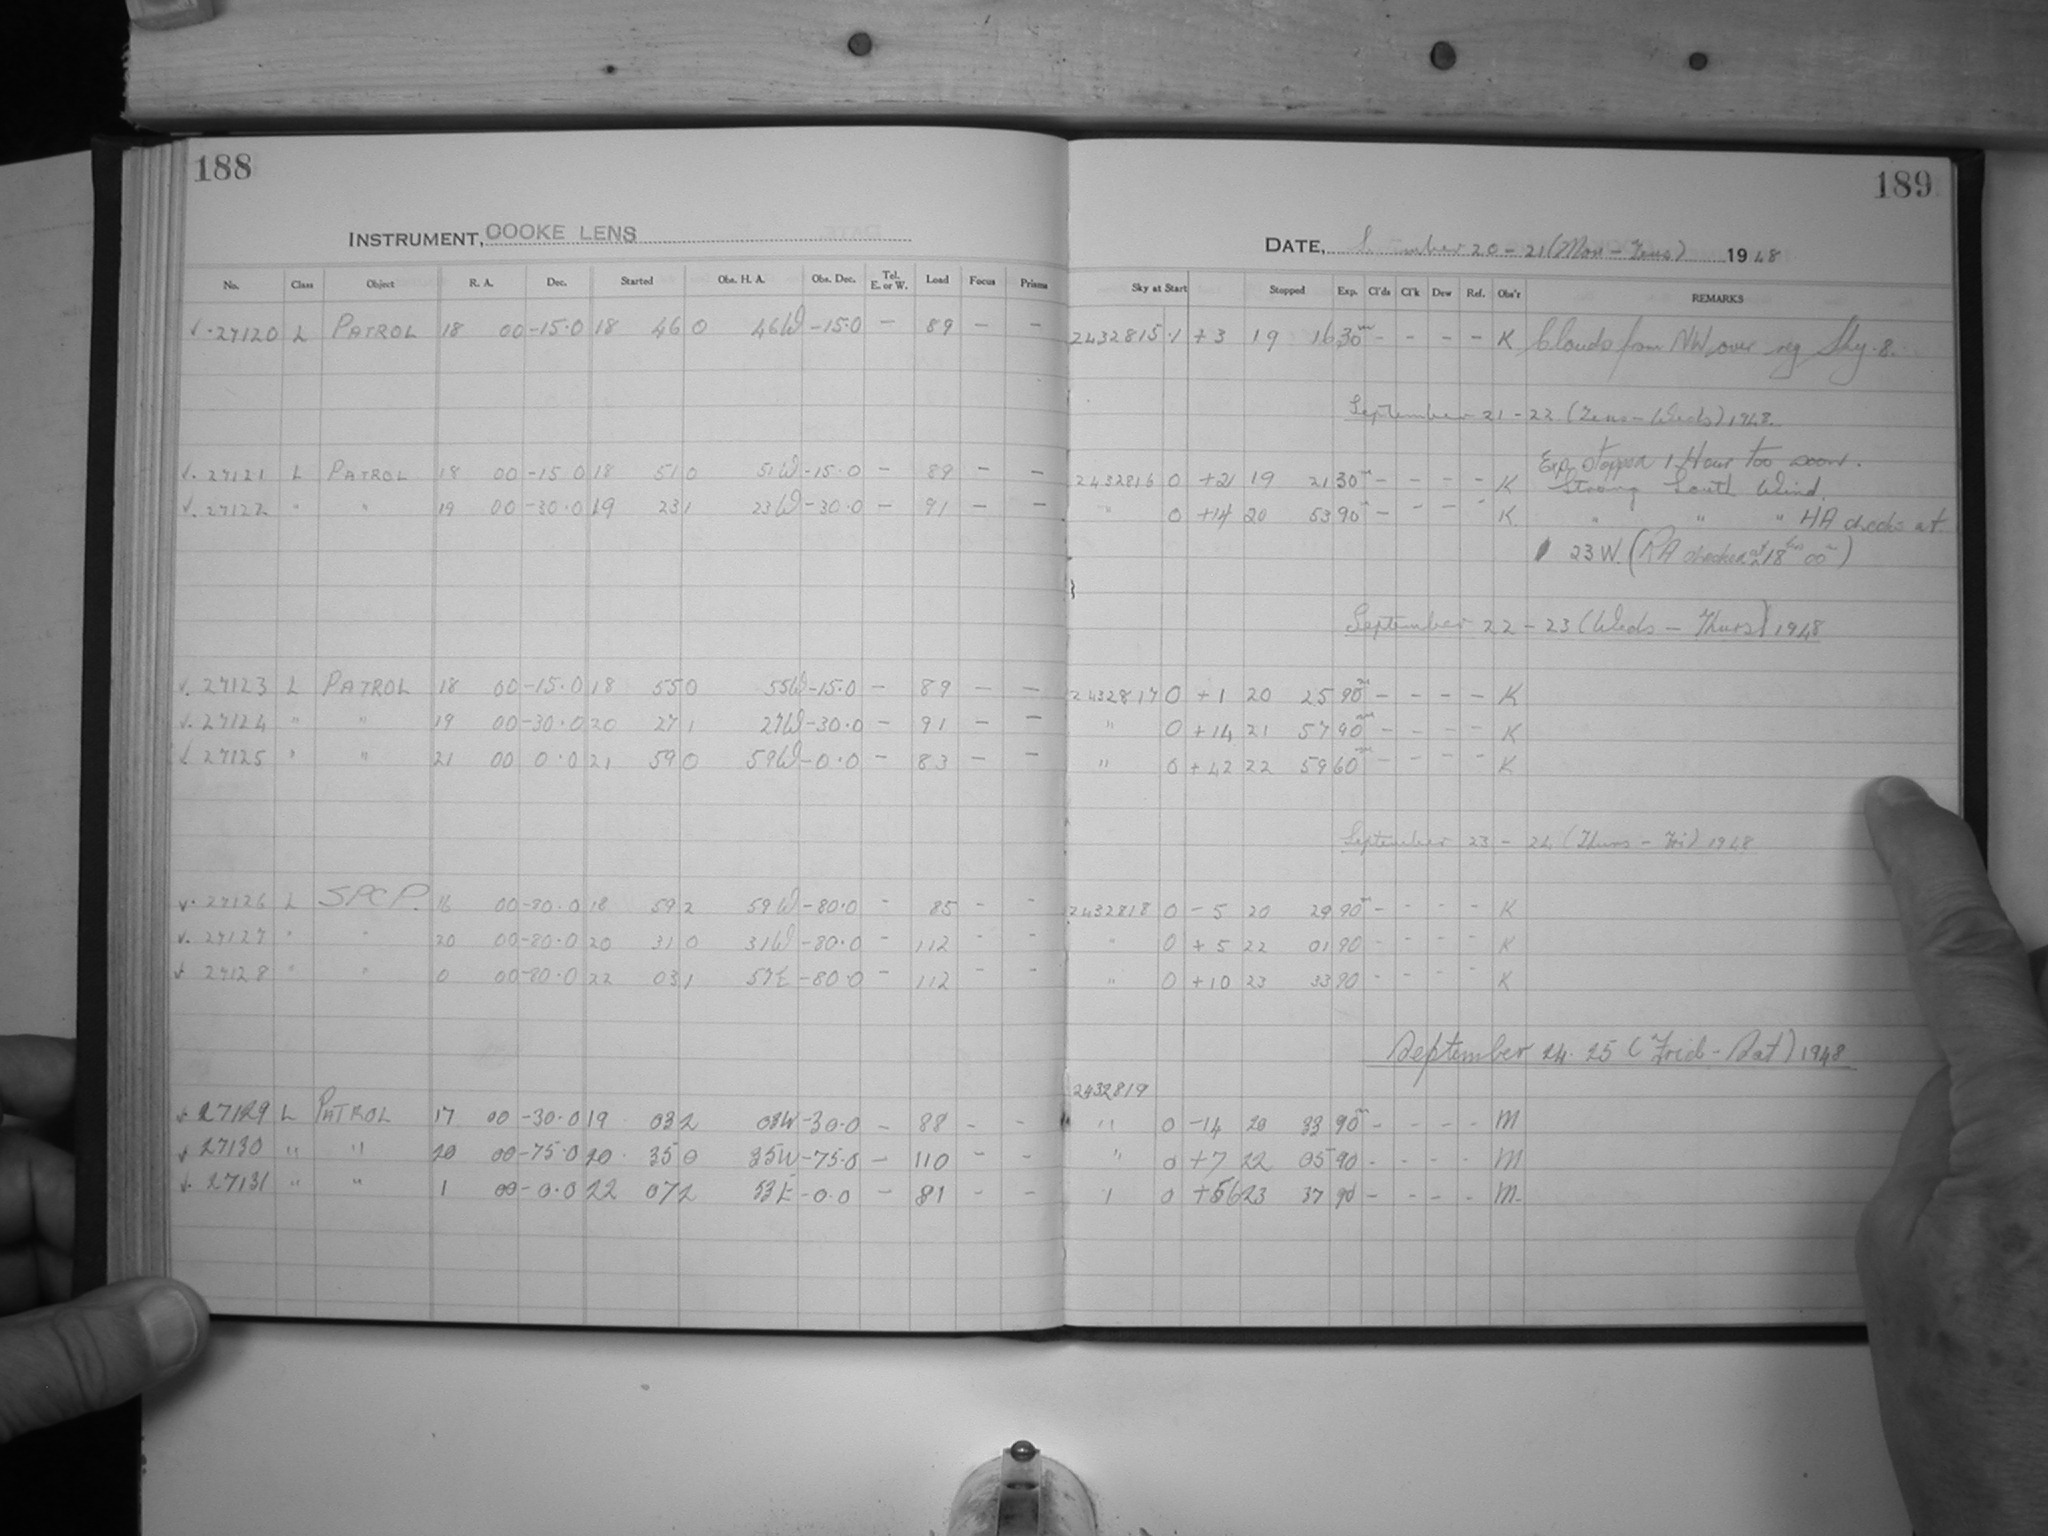 188
INSTRUMENT, COOKE LENS
No. Class Object R. A. Dec. Started Obs. H. A. Obs. Dec. Tel. E. or W. Load Focus Prisms
√ · 27120 L PATROL 18 00 -15·0 18 46 0 46W -15·0 - 89 - -
√ · 27121 L PATROL 18 00 -15·0 18 51 0 51W -15·0 - 89 - -
√ · 27122 " " 19 00 -30·0 19 23 1 23W -30·0 - 91 - -
√ · 27123 L PATROL 18 00 -15·0 18 55 0 55W -15·0 - 89 - -
√ · 27124 " " 19 00 -30·0 20 27 1 27W -30·0 - 91 - -
√ 27125 " " 21 00 0·0 21 59 0 59W -0·0 - 83 - -
√ · 27126 L SPCP. 16 00 -80·0 18 59 2 59W -80·0 - 85 - -
√ · 27127 " " 20 00 -80·0 20 31 0 31W -80·0 - 112 - -
√ 27128 " " 0 00 -80·0 22 03 1 57E -80·0 - 112 - -
√ 27129 L PATROL 17 00 -30·0 19 03 2 03W -30·0 - 88 - -
√ 27130 " " 20 00 -75·0 20 35 0 35W -75·0 - 110 - -
√ · 27131 " " 1 00 -0·0 22 07 2 53E -0·0 - 81 - -
189
DATE, 20 - 21 (Mon - Tues) 1948
Sky at Start Stopped Exp. Cl'ds Cl'k Dew Ref. Obs'r REMARKS
2432815 ·1 +3 19 16 30m - - - - K Clouds from NW over reg Sky .8.
September 21 - 22 (Tues - Weds) 1948.
Exp. stopped 1 Hour too soon.
2432816 0 +21 19 21 30m - - - - K Strong South Wind.
" 0 +14 20 53 90m - - - - K " " " HA checks at
23 W. (RA checked at 18hrs 00m)
September 22 - 23 (Weds - Thurs) 1948
2432817 0 +1 20 25 90m - - - - K
" 0 +14 21 57 90m - - - - K
" 0 +42 22 59 60m - - - - K
September 23 - 24 (Thurs - Fri) 1948
2432818 0 -5 20 29 90m - - - - K
" 0 +5 22 01 90 - - - - K
" 0 +10 23 33 90 - - - - K
September 24. 25 (Frid - Sat) 1948
2432819
" 0 -14 20 33 90m - - - - M
" 0 +7 22 05 90 - - - - M
" 0 +56 23 37 90 - - - - M.